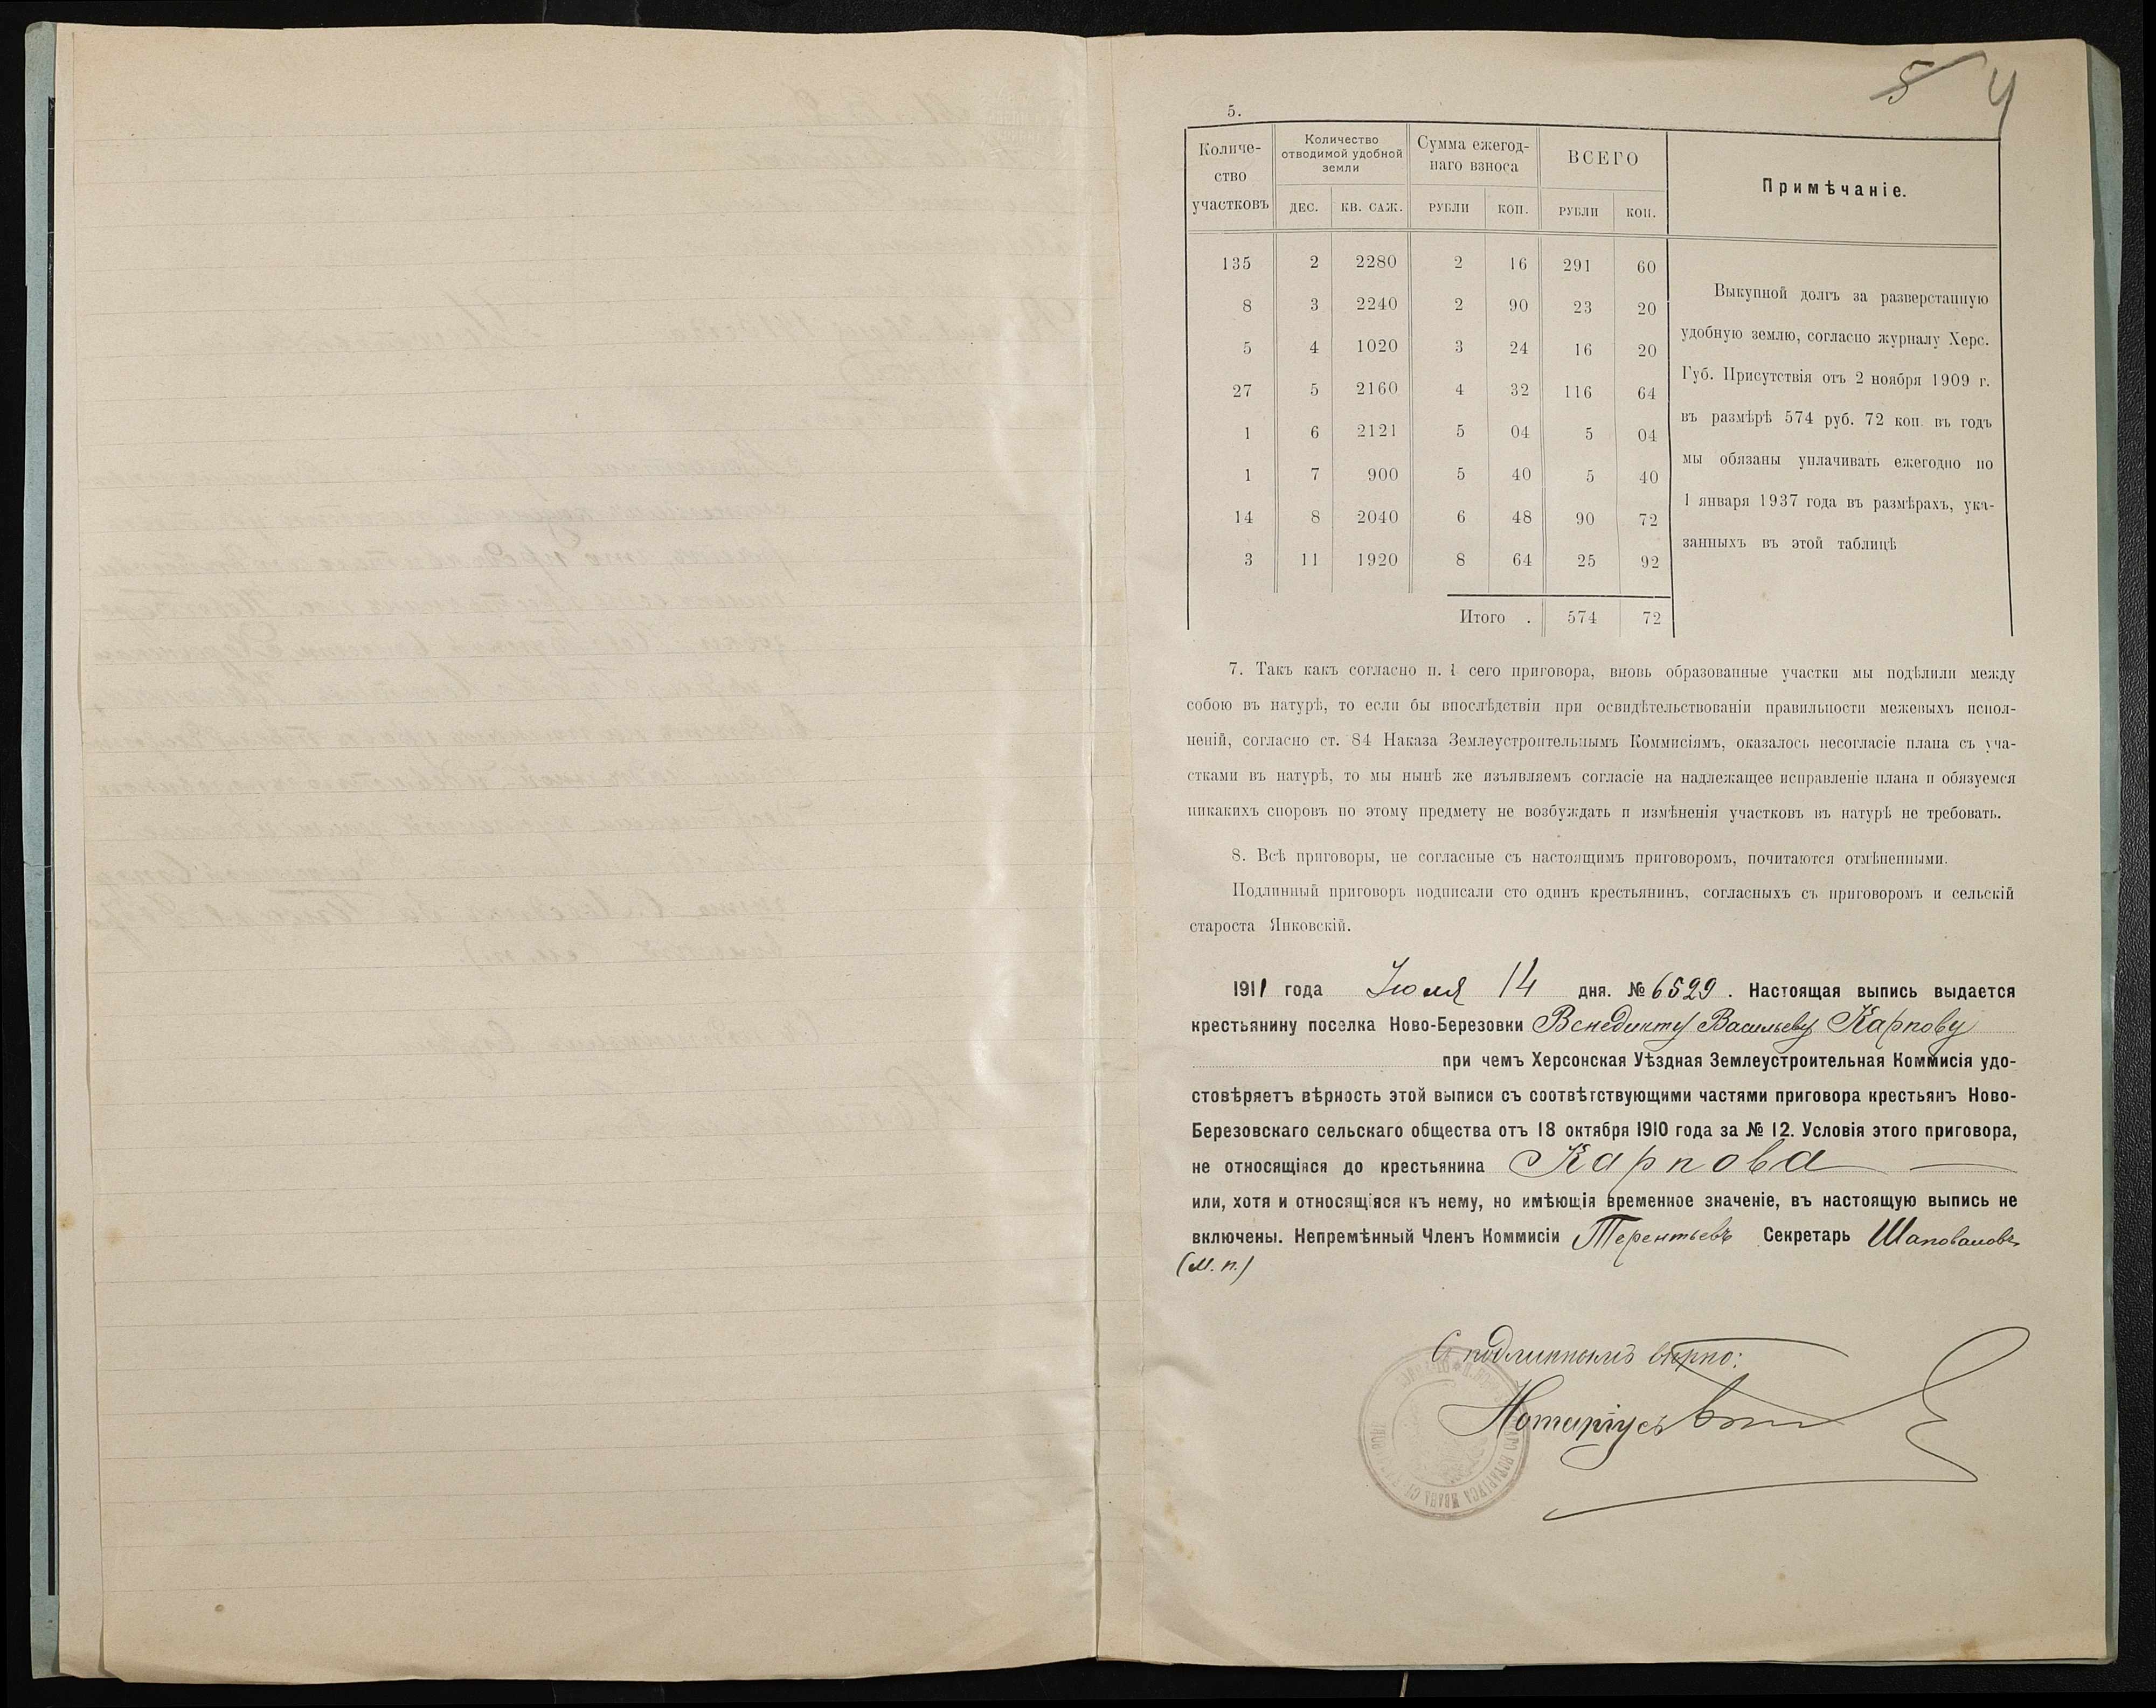 5 4
5.
Количе-
ство
участковъ
Количество
отводимой удобной
земли
Сумма ежегод-
наго взноса
ВСЕГО
Примѣчаніе.
ДЕС. КВ. САЖ. РУБЛИ КОП. РУБЛИ КОП.
135 2 2280 2 16 291 60
8 3 2240 2 90 23 20
5 4 1020 3 24 16 20
27 5 2160 4 32 116 64
1 6 2121 5 04 5 04
1 7 900 5 40 5 40
14 8 2040 6 48 90 72
3 11 1920 8 64 25 92
Итого . 574 72
Выкупной долгъ за разверстанную
удобную землю, согласно журналу Херс.
Губ. Присутствія отъ 2 ноября 1909 г.
въ размѣрѣ 574 руб. 72 коп. въ годъ
мы обязаны уплачивать ежегодно по
1 января 1937 года въ размѣрахъ, ука-
занныхъ въ этой таблицѣ
7. Такъ какъ согласно п. 1 сего приговора, вновь образованные участки мы подѣлили между
собою въ натурѣ, то если бы впослѣдствіи при освидѣтельствованіи правильности межевыхъ испол-
неній, согласно ст. 84 Наказа Землеустроительнымъ Коммисіямъ, оказалось несогласіе плана съ уча-
стками въ натурѣ, то мы нынѣ же изъявляемъ согласіе на надлежащее исправленіе плана и обязуемся
никакихъ споровъ по этому предмету не возбуждать и измѣненія участковъ въ натурѣ не требовать.
8. Всѣ приговоры, не согласные съ настоящимъ приговоромъ, почитаются отмѣненными.
Подлинный приговоръ подписали сто одинъ крестьянинъ, согласныхъ съ приговоромъ и сельскій
староста Янковскій.
1911 года Іюля 14 дня. № 6529. Настоящая выпись выдается
крестьянину поселка Ново-Березовки Венедикту Васильеву Карпову
при чемъ Херсонская Уѣздная Землеустроительная Коммисія удо-
стовѣряетъ вѣрность этой выписи съ соотвѣтствующими частями приговора крестьянъ Ново-
Березовскаго сельскаго общества отъ 18 октября 1910 года за № 12. Условія этого приговора,
не относящіяся до крестьянина Карпова —
или, хотя и относящіяся къ нему, но имѣющія временное значеніе, въ настоящую выпись не
включены. Непремѣнный Членъ Коммисіи Терентьевъ Секретарь Шаповаловъ
(М. п.)
С подлиннымъ вѣрно:
Нотаріусъ